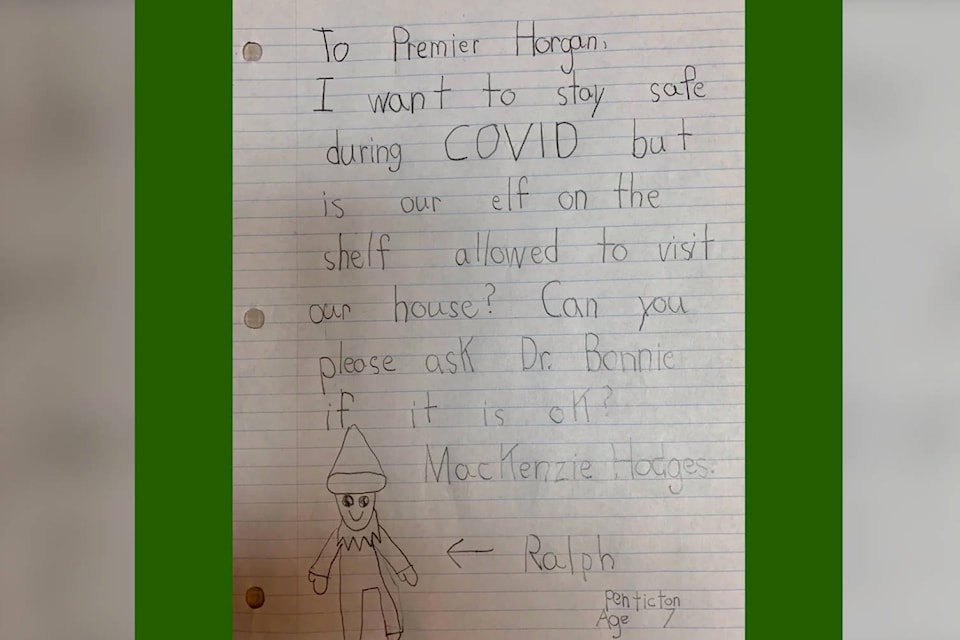 To Premier Horgan,
I want to stay safe
during COVID but
is our elf on the
shelf allowed to visit
our house? Can you
please ask Dr. Bonnie
if it is ok?
MacKenzie Hodges.
← Ralph
Penticton
Age 7